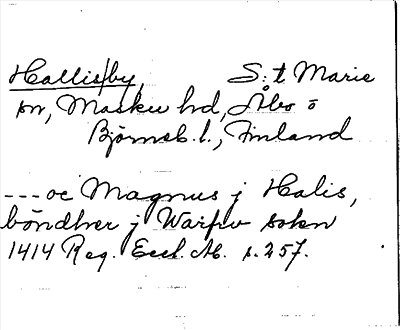 Hallis|by, S:t Marie
sn, Masku hd, Åbo o
Björneb. l., Finland
--- oc Magnus j Halis,
böndher j Warfru sokn
1414 Reg. Eccl. Ab. s. 257.